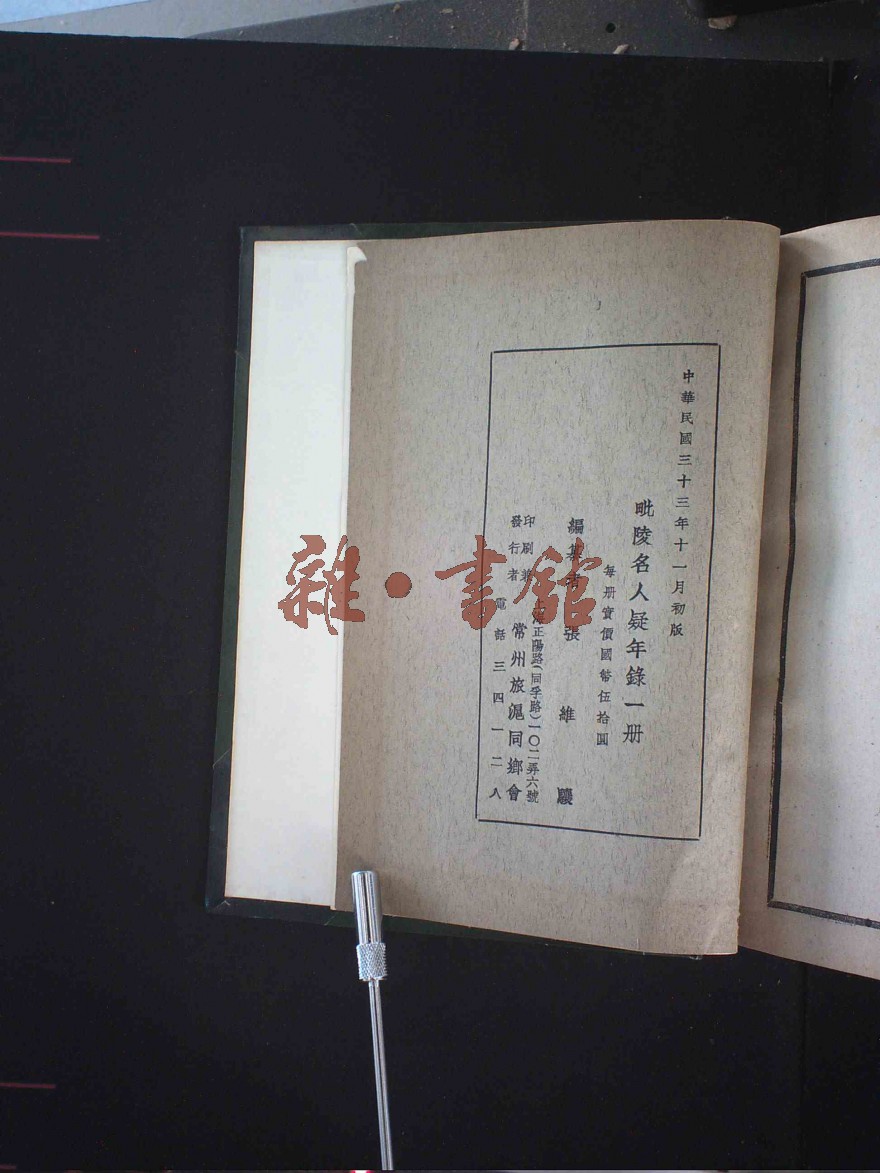 中華民國三十三年十一月初版
毗陵名人疑年錄一册
每册實價國幣伍拾圓
編纂者 張維驤
上海正陽路(同孚路)一〇二弄六號
印刷兼
發行者
常州旅滬同鄉會
電話三四一二八
雜·書館